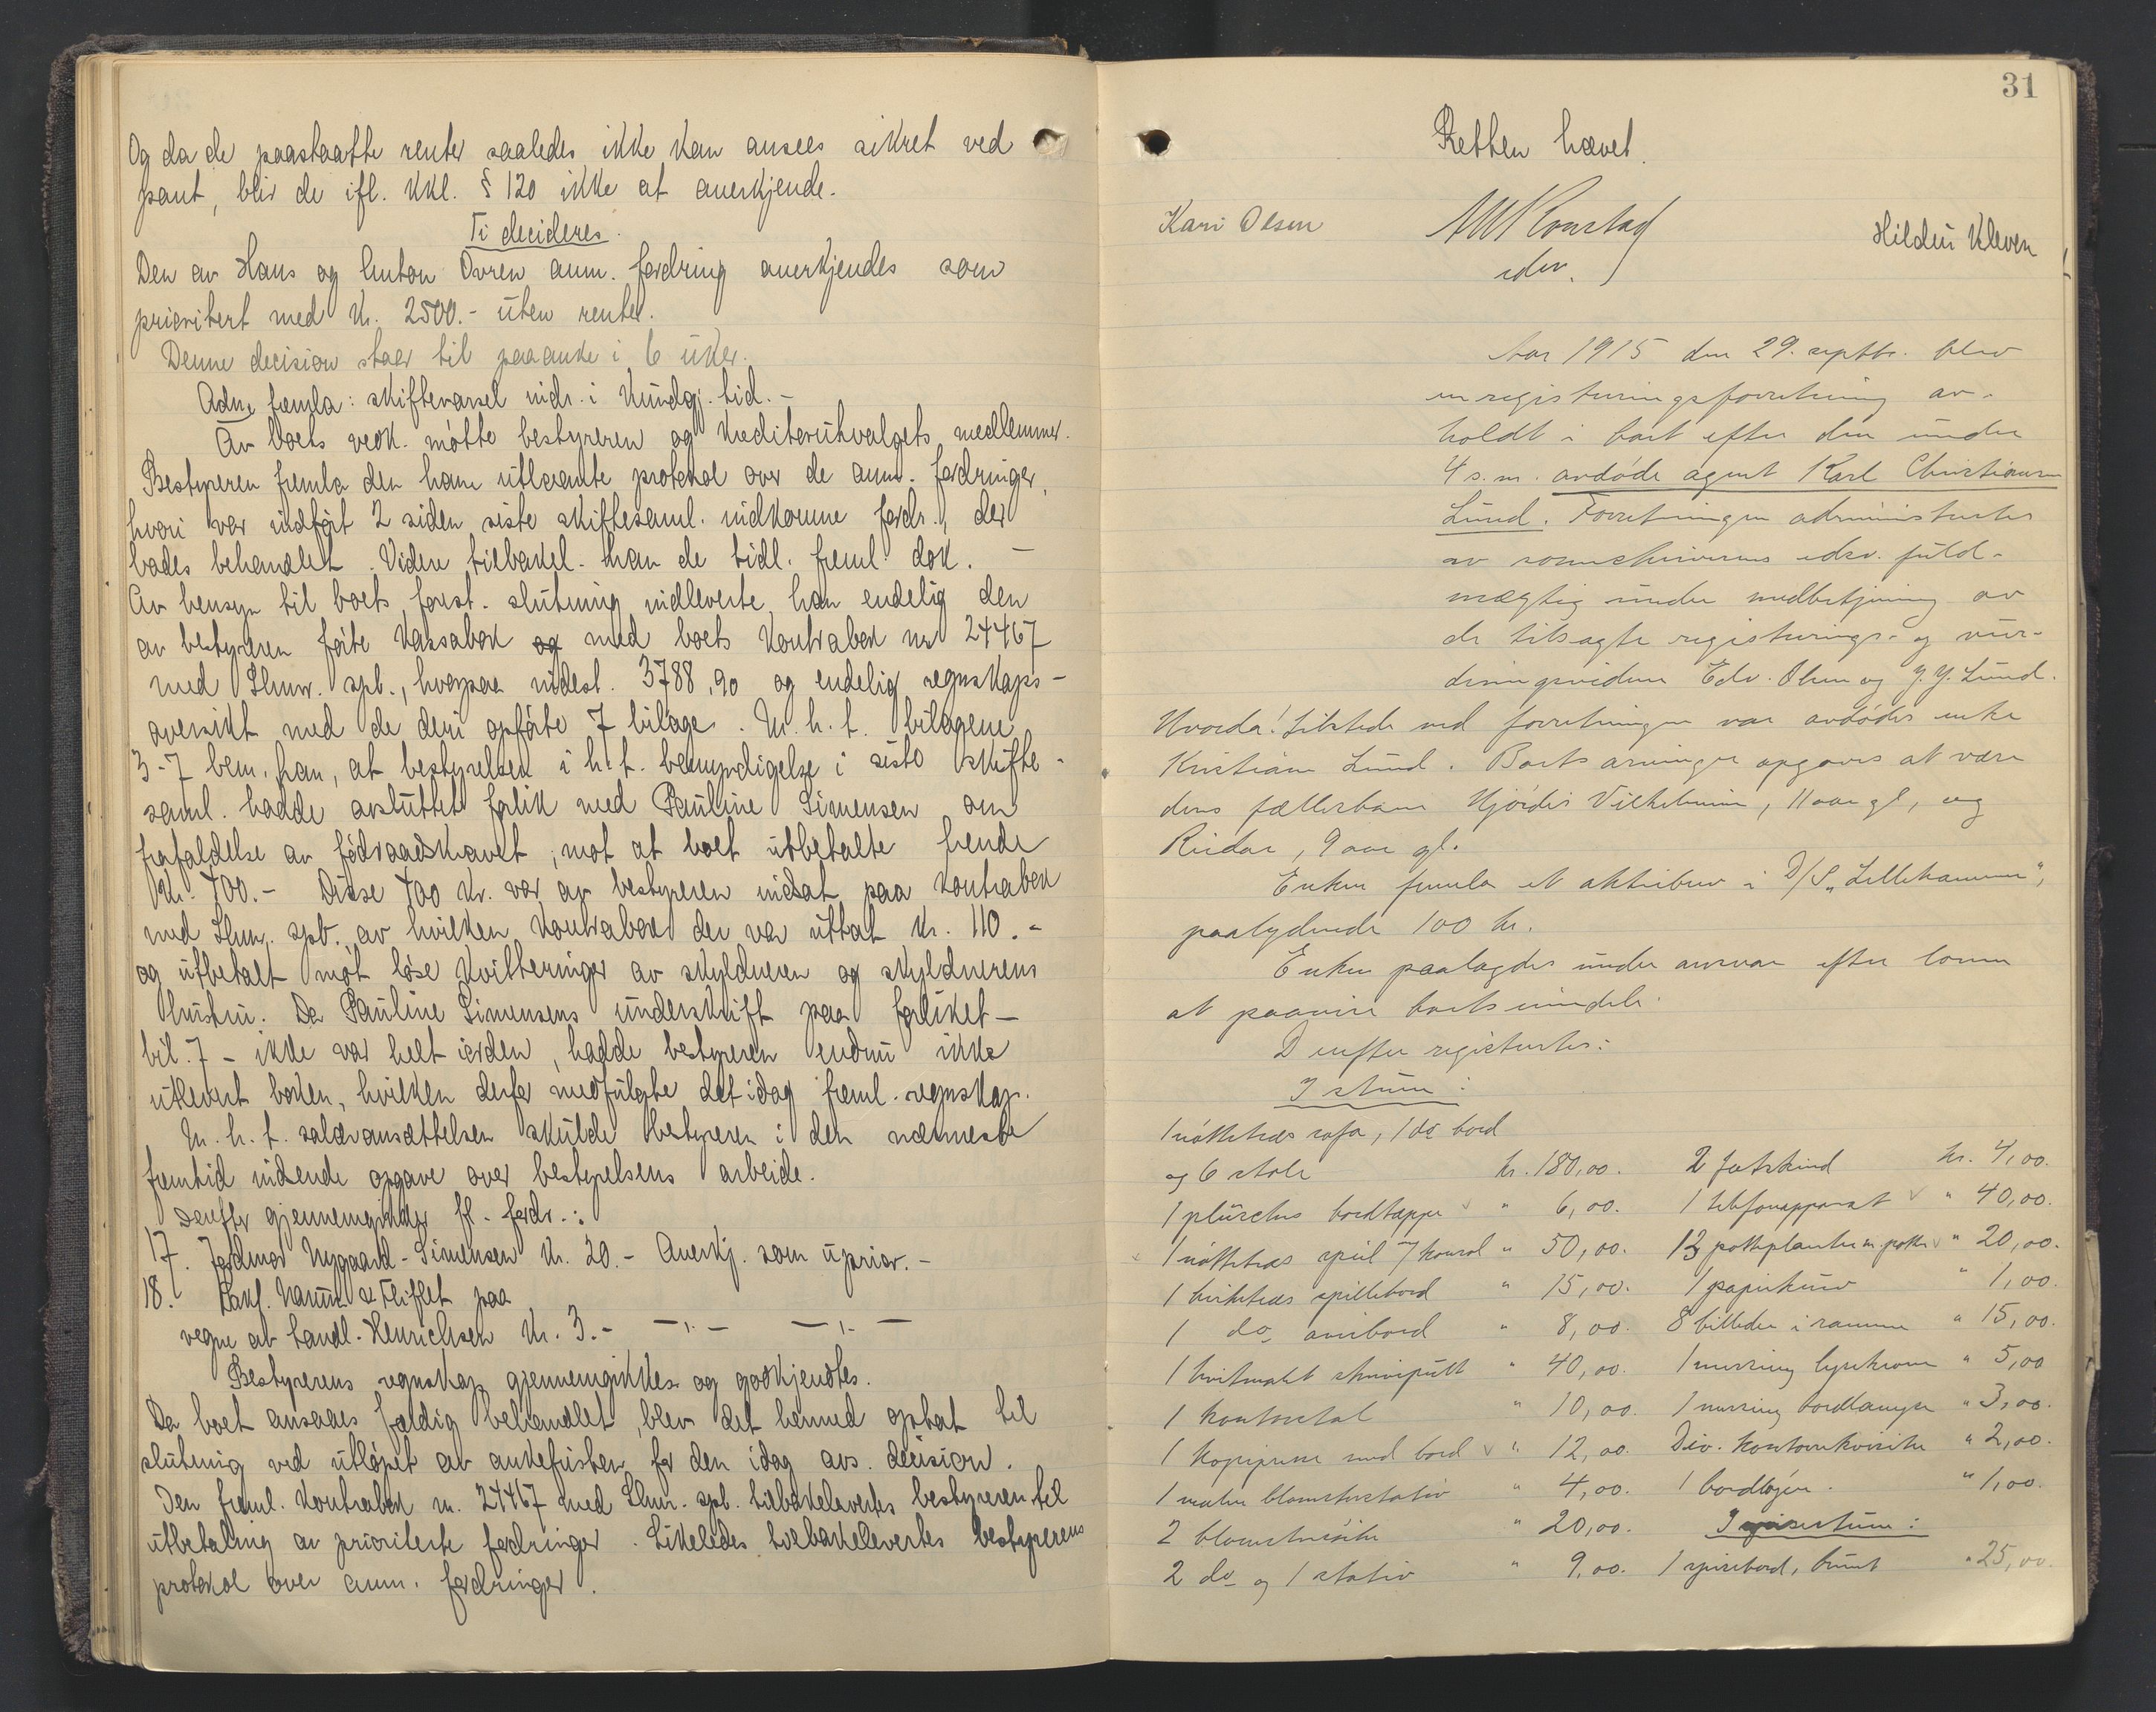 Og da de paastaatte renter saaledes ikke kan ansees sikret ved
pant, blir de ifl. kkl. § 120 ikke at anerkjende.
Ti decideres.
Den av Hans og Anton Øvren anm. fordring anerkjendes som
prioritert med kr. 2500.- uten renter.
Denne decision staar til paaanke i 6 uker.
Adm. fremla: skiftevarsel indr. i Kundgj. tid. -
Av boets vedk. møtte bestyreren og kreditorutvalgets medlemmer.
Bestyreren fremla den ham utlaante protokol over de anm. fordringer,
hvori var indført 2 siden siste skiftesaml. indkomne fordr., der
bades behandlet. Videre tilbakel. han de tidl. freml. dok. -
Av hensyn til boets forest. slutning indleverte han endelig den
av bestyreren førte kassabok og med boets kontrabok nr 24467
med Lhmr. spb., hvorpaa indest. 3788,90 og endelig regnskaps-
oversikt med de deri opførte 7 bilage. M. h. t. bilagene
3-7 bem. han, at bestyrelsen i h. t. bemyndigelse i siste skifte-
saml. hadde avsluttet forlik med Pauline Simensen om
frafaldelse av fødraadskravet, mot at boet utbetalte hende
kr. 700.- Disse 700 kr. var av bestyreren indsat paa kontrabok
med Lhmr. spb. av hvilken kontrabok der var uttat kr. 110.-
og utbetalt mot løse kvitteringer av skyldneren og skyldnerens
hustru. Da Pauline Simensens underskrift paa forliket -
bil. 7 - ikke var helt iorden, hadde bestyreren endnu ikke
utlevert boken, hvilken derfor medfulgte det idag freml. regnskap.
M. h. t. salæransættelsen skulde bestyreren i den nærmeste
fremtid indsende opgave over bestyrelsens arbeide.
Derefter gjennemgikkes fl. fordr.:
17. Nygaard-Simensen kr. 20.- Anerkj. som uprior. -
18. Sakf. Hamm & Fliflet paa
vegne av handl. Henrichsen kr. 3.- -"- -"-
Bestyrerens regnskap gjennemgikkes og godkjendtes.
Da boet ansaaes færdig behandlet, blev det hermed optat til
slutning ved utløpet av ankefristen for den idag avs. decision.
Den freml. kontrabok nr. 24467 med Lhmr. spb. tilbakelevertes bestyreren til
utbetaling av prioriterte fordringer. Likeledes tilbakelevertes bestyrerens
protokol over anm. fordringer.
31
Retten hævet.
Kari Olsen
Hildur Kleven
edsv.
Aar 1915 den 29. septbr. blev
en registreringsforretning av-
holdt i boet efter den under
4 s. m. avdøde agent Karl Christiansen
Lund. Forretningen administrertes
av sorenskriverens edsv. fuld-
mægtig under medbetjening av
de tilsagte registrerings- og vur-
deringsvidner Edv. Olsen og J. J. Lund.
Hvorda! Tilstede ved forretningen var avdødes enke
Kristiane Lund. Boets arvinger opgaves at være
dens fællesbarn Hjørdis Vilhelmine, 11 aar gl, og
Reidar, 9 aar gl.
Enken fremla et aktiebrev i D/S „Lillehammer",
paalydende 100 kr.
Enken paalagdes under ansvar efter loven
at paavise boets eiendele.
Derefter registrertes:
I stuen:
1 nøttetræs sofa, 1 do bord
og 6 stole kr. 180,00. 2 faarskind kr. 4,00.
1 plüsches bordtæppe " 6,00. 1 telefonapparat " 40,00.
1 nøttetræs speil m/ konsol " 50,00. 13 potteplanter m. potter " 20,00.
1 birketræs spillebord " 15,00. 1 papirkurv " 1,00.
1 do avisbord " 8,00. 8 billeder i ramme " 15,00.
1 hvitmalt skrivepult " 40,00. 1 messing lysekrone " 5,00
1 kontorstol " 10,00. 1 messing bordlampe " 3,00.
1 kopipresse med bord " 12,00. Div. kontorrekvisiter " 2,00.
1 malm blomsterstativ " 4,00. 1 bordløper. " 1,00.
2 blomstersøiler " 20,00. I spisestuen:
2 do og 1 stativ " 9,00. 1 spisebord, brunt " 25,00.